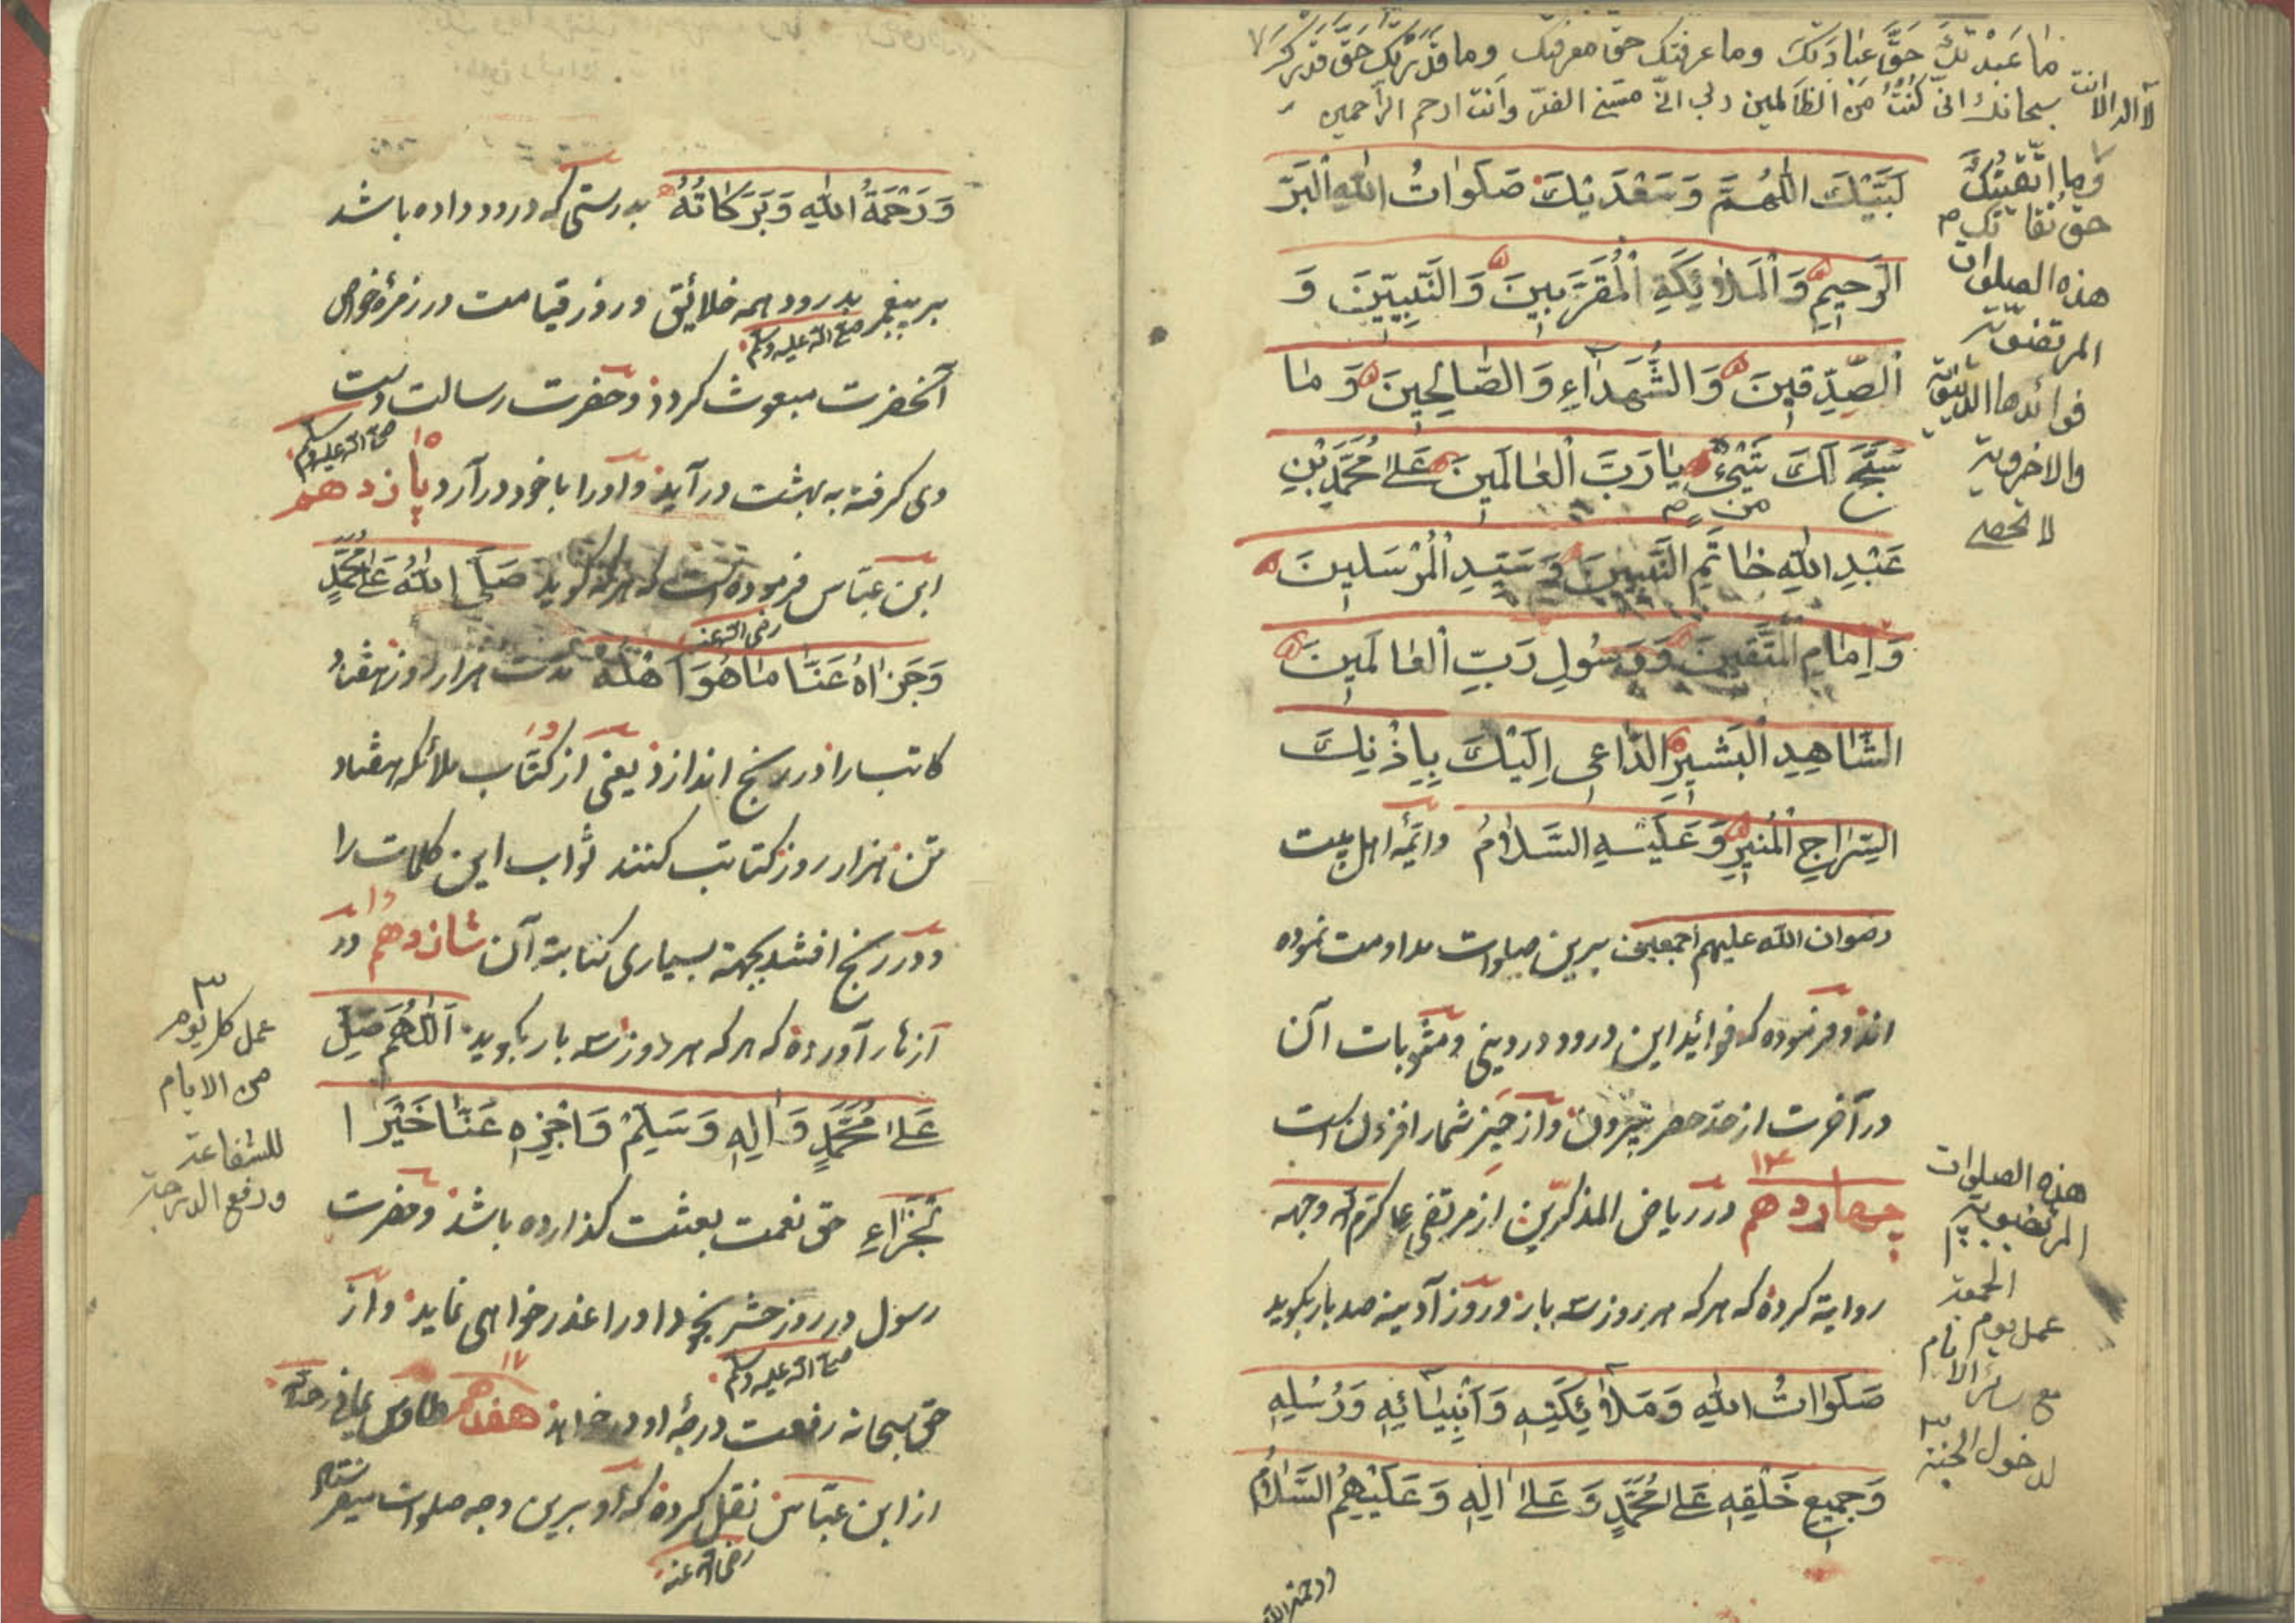 ما عَبَدْتُكَ حَقَّ عِبَادَتِكَ وما عرفتك حق معرفتك وما قَدَّرْتُكَ حَقَّ قَدْرِكَ
لا اله الا انت سبحانك انی كُنْتُ مِنَ الظالمين رب انی مسّنی الضرّ وانت ارحم الراحمين
وما اتَّقَيْتُكَ
حق تقاتك
هذه الصلوات
المرتضوية
فوائدها الدنيوية
والاخروية
لا تحصى
لَبَّيْكَ اللّٰهُمَّ وَسَعْدَيْكَ صَلَوَاتُ اللّٰهِ الْبَرِّ
الرَّحِيمِ وَالْمَلَائِكَةِ الْمُقَرَّبِينَ وَالنَّبِيِّينَ وَ
الصِّدِّقِينَ وَالشُّهَدَاءِ وَالصَّالِحِينَ وَمَا
سَبَّحَ لَكَ مِن شَيْءٍ يَا رَبَّ الْعَالَمِينَ عَلَىٰ مُحَمَّدِ بْنِ
عَبْدِ اللّٰهِ خَاتَمِ النَّبِيِّينَ وَسَيِّدِ الْمُرْسَلِينَ
وَاِمَامِ الْمُتَّقِينَ وَرَسُولِ رَبِّ الْعَالَمِينَ
الشَّاهِدِ الْبَشِيرِ الدَّاعِي اِلَيْكَ بِاِذْنِكَ
السِّرَاجِ الْمُنِيرِ وَعَلَيْهِ السَّلَامُ وائمّهٔ اهل بيت
رضوان الله عليهم اجمعين برين صلوات مداومت نموده
اند و فرموده كه فوائد اين درود در دينی و مثوبات آن
در آخرت از حدّ حصر بيرون و از حيّز شمار افزون است
١٤
چهاردهم در رياض المذكرين از مرتضی علی كرّم الله وجهه
روايت كرده كه هر كه هر روز سه بار و روز آدينه صد بار بگويد
صَلَوَاتُ اللّٰهِ وَمَلَائِكَتِهِ وَاَنْبِيَائِهِ وَرُسُلِهِ
وَجَمِيعِ خَلْقِهِ عَلَىٰ مُحَمَّدٍ وَعَلَىٰ اٰلِهِ وَعَلَيْهِمُ السَّلَامُ
ورحمة الله
هذه الصلوات
المرتضوية
عمل يوم الجمعة
مع سائر الايام
لدخول الجنة
وَرَحْمَةُ اللّٰهِ وَبَرَكَاتُهُ بدرستی كه درود داده باشد
بر پيغمبر صلی الله عليه وسلم بدرود همه خلائق و روز قيامت در زمرهٔ خواص
آنحضرت مبعوث گردد و حضرت رسالت صلی الله عليه وسلم دست
وی گرفته به بهشت درآيد و او را با خود درآرد ١٥ پانزدهم
ابن عبّاس رضی الله عنه فرموده است كه هر كه گويد صَلَّى اللّٰهُ عَلَىٰ مُحَمَّدٍ
وَجَزَاهُ عَنَّا مَا هُوَ اَهْلُهُ مدت هزار روز هفتاد
كاتب را در رنج اندازد يعنی از كتّاب ملائكه هفتاد
تن هزار روز كتابت كنند ثواب اين كلمات را
و در رنج افتند بجهة بسياری كتابت آن شانزدهم در
آثار آورده كه هر كه هر روز سه بار بگويد اَللّٰهُمَّ صَلِّ
عَلَىٰ مُحَمَّدٍ وَاٰلِهِ وَسَلِّمْ وَاجْزِهِ عَنَّا خَيْرَ ا
لْجَزَاءِ حق نعمت بعثت گذارده باشد و حضرت
رسول صلی الله عليه وسلم در روز حشر بخود او را عذر خواهی نمايد و از
حق سبحانه رفعت درجهٔ او درخواهد ١٧ هفدهم طاوس يمانی رحمه الله
از ابن عبّاس رضی الله عنه نقل كرده كه او برين وجه صلوات ميفرستاد
عمل كل يوم
من الايام
للشفاعة
ورفع الدرجة